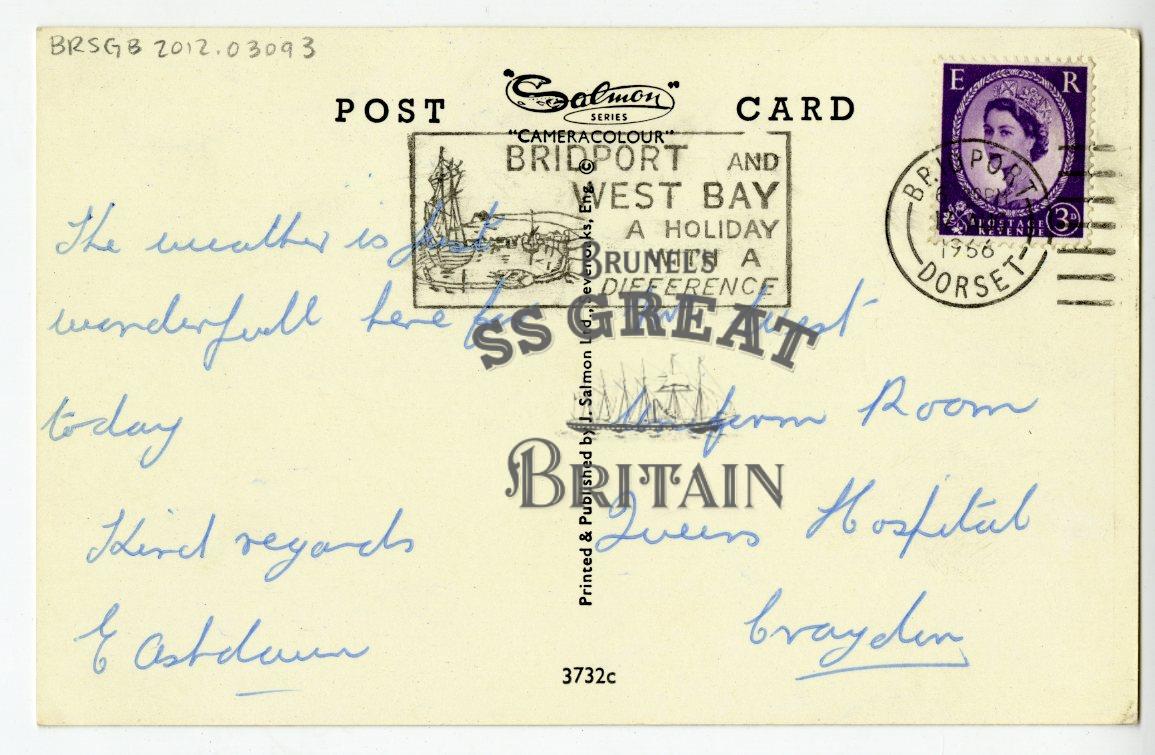 BRSGB 2012.03093
POST CARD
Salmon
SERIES
"CAMERACOLOUR"
BRIDPORT AND
WEST BAY
A HOLIDAY
WITH A
DIFFERENCE
E R
POSTAGE
REVENUE
3D
BRIDPORT
1966
DORSET
The weather is just
wonderfull here
today
Kind regards
E Astdown
West
Uniform Room
Queens Hospital
Croydon
Printed & Published by J. Salmon Ltd., Sevenoaks, Eng. ©
3732c
BRUNEL'S
SS GREAT
BRITAIN